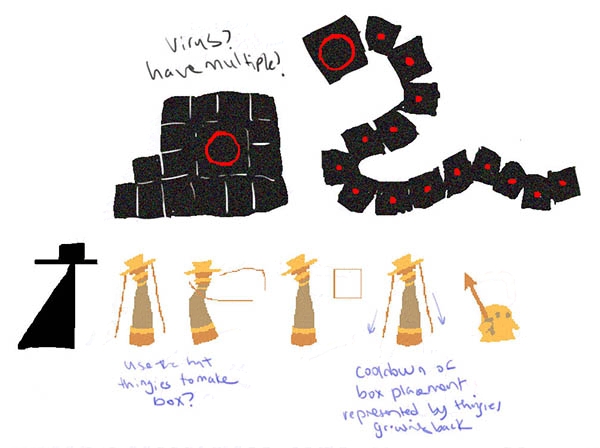 Virus?
have multiple?
use the hat
thingies to make
box?
cooldown of
box placement
represented by thingies
growing back